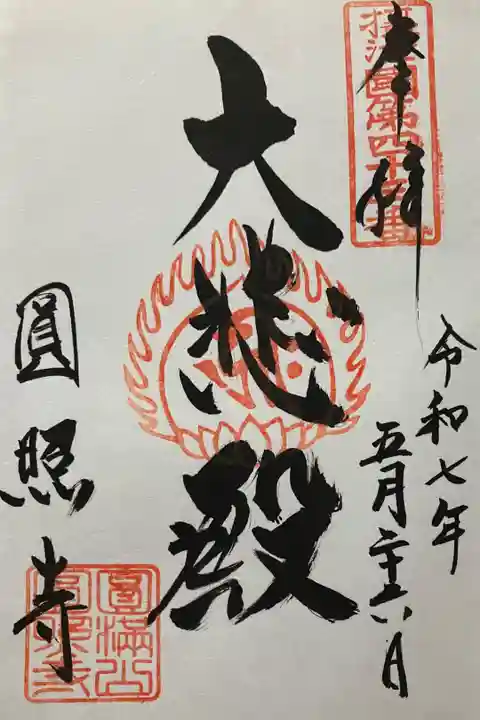 奉拝
令和七年
五月二十六日
大悲殿
圓照寺